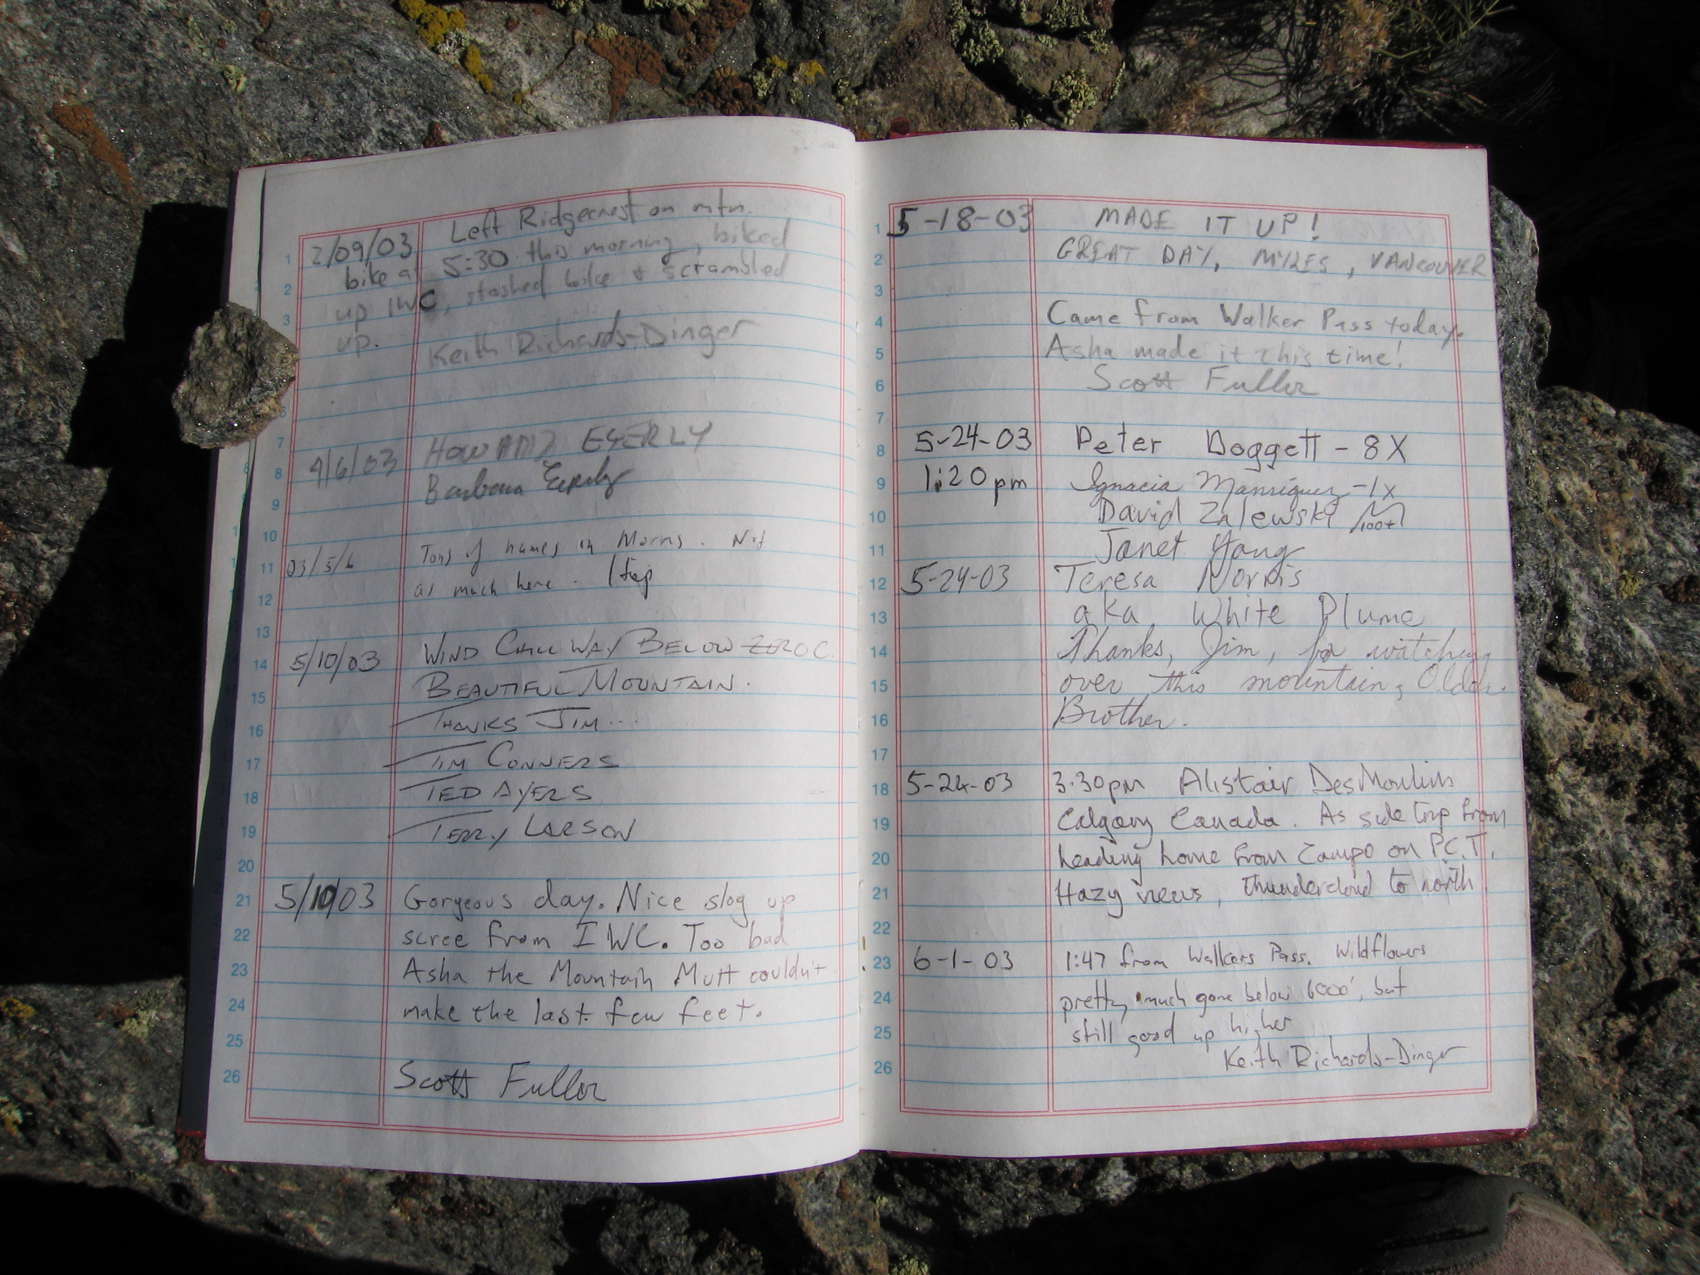 2/09/03 Left Ridgecrest on mtn.
bike at 5:30 this morning, biked
up IWC, stashed bike & scrambled
up.
Keith Richards-Dinger
Howard
4/6/03 Barbara
03/5/6 Tons of names in Morris. Not
as much here.
5/10/03 WIND CHILL WAY BELOW ZERO C.
BEAUTIFUL MOUNTAIN.
THANKS JIM...
TIM CONNERS
TED AYERS
TERRY LARSON
5/10/03 Gorgeous day. Nice slog up
scree from IWC. Too bad
Asha the Mountain Mutt couldn't
make the last few feet.
Scott Fuller
5-18-03 MADE IT UP!
GREAT DAY, MYLES, VANCOUVER
Came from Walker Pass today.
Asha made it this time!
Scott Fuller
5-24-03 Peter Doggett - 8X
1:20pm Ignacia Manriquez - 1x
David Zalewski 100+
Janet Yang
5-24-03 Teresa Norris
aka White Plume
Thanks, Jim, for watching
over this mountain, Older
Brother.
5-24-03 3:30pm Alistair DesMoulins
Calgary Canada. As side trip from
heading home from Campo on P.C.T.
Hazy views, thundercloud to north
6-1-03 1:47 from Walkers Pass. Wildflowers
pretty much gone below 6000', but
still good up higher
Keith Richards-Dinger
1
2
3
7
8
10
11
12
13
14
15
16
17
18
19
20
21
22
23
24
25
26
1
2
3
4
5
6
7
8
9
10
11
12
13
14
15
16
17
18
19
20
21
22
23
24
25
26